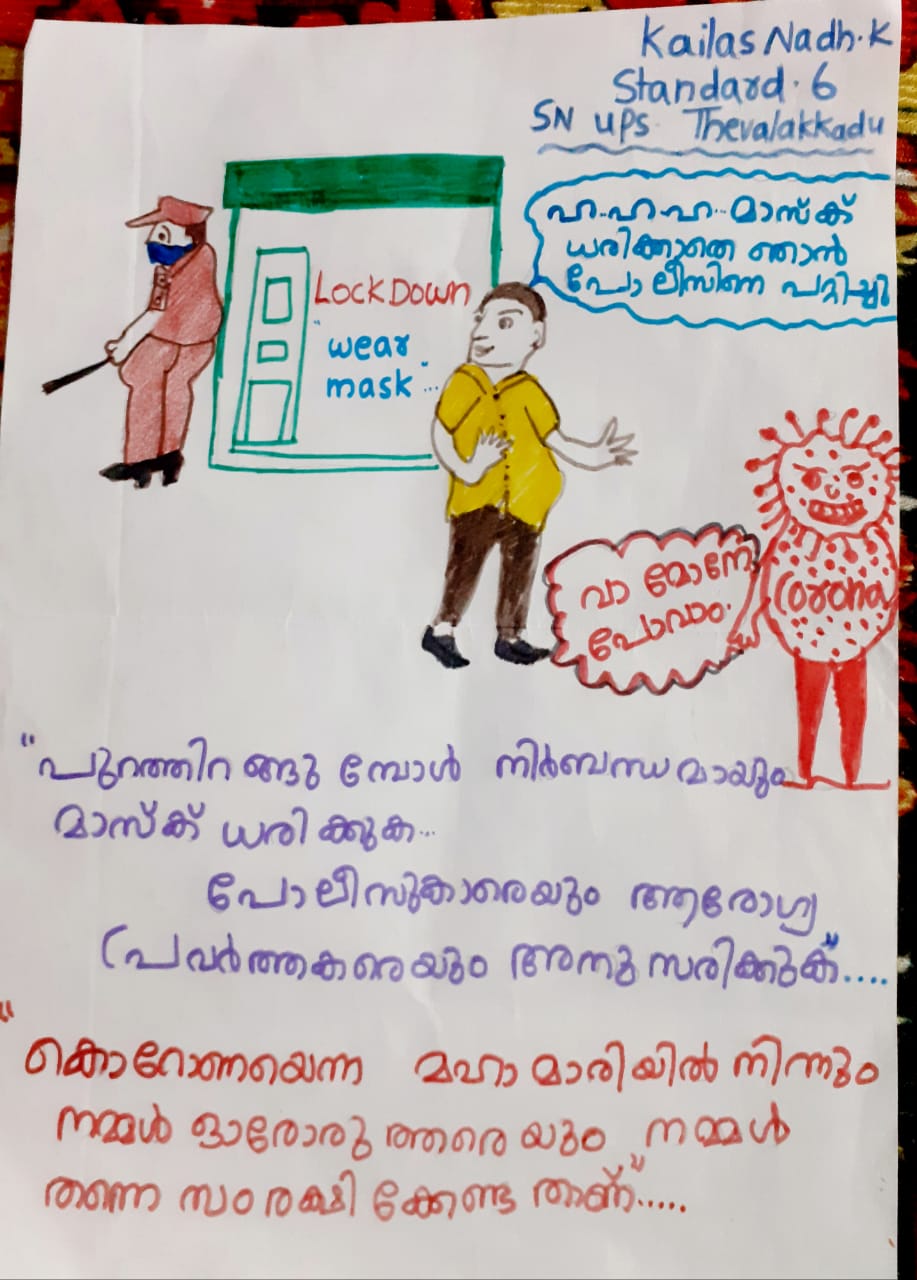 Kailas Nadh. K
Standard. 6
SN UPS Thevalakkadu
ഹ..ഹ..ഹ... മാസ്ക്
ധരിക്കാതെ ഞാൻ
പോലീസിനെ പറ്റിച്ചു
LOCKDOWN
"wear
mask"...
വാ മോനേ
പോവാം.
Corona
"പുറത്തിറങ്ങുമ്പോൾ നിർബന്ധമായും
മാസ്ക് ധരിക്കുക...
പോലീസുകാരെയും ആരോഗ്യ
പ്രവർത്തകരെയും അനുസരിക്കുക"....
"കൊറോണയെന്ന മഹാമാരിയിൽ നിന്നും
നമ്മൾ ഓരോരുത്തരെയും നമ്മൾ
തന്നെ സംരക്ഷിക്കേണ്ടതാണ്".....